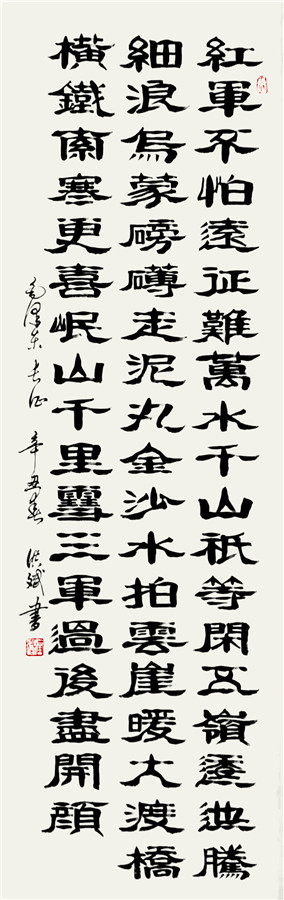 紅軍不怕遠征難萬水千山祇等閑五嶺逶迤騰
細浪烏蒙磅礴走泥丸金沙水拍雲崖暖大渡橋
橫鐵索寒更喜岷山千里雪三軍過後盡開顏
毛澤東 長征 辛丑春 洪斌書